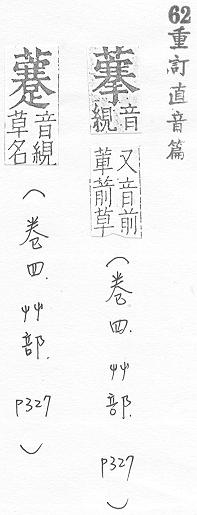 62重訂直音篇
音絸
又音前葷葥草
(卷四.艸部.p327)
音絸草名
(卷四.艸部.p327)